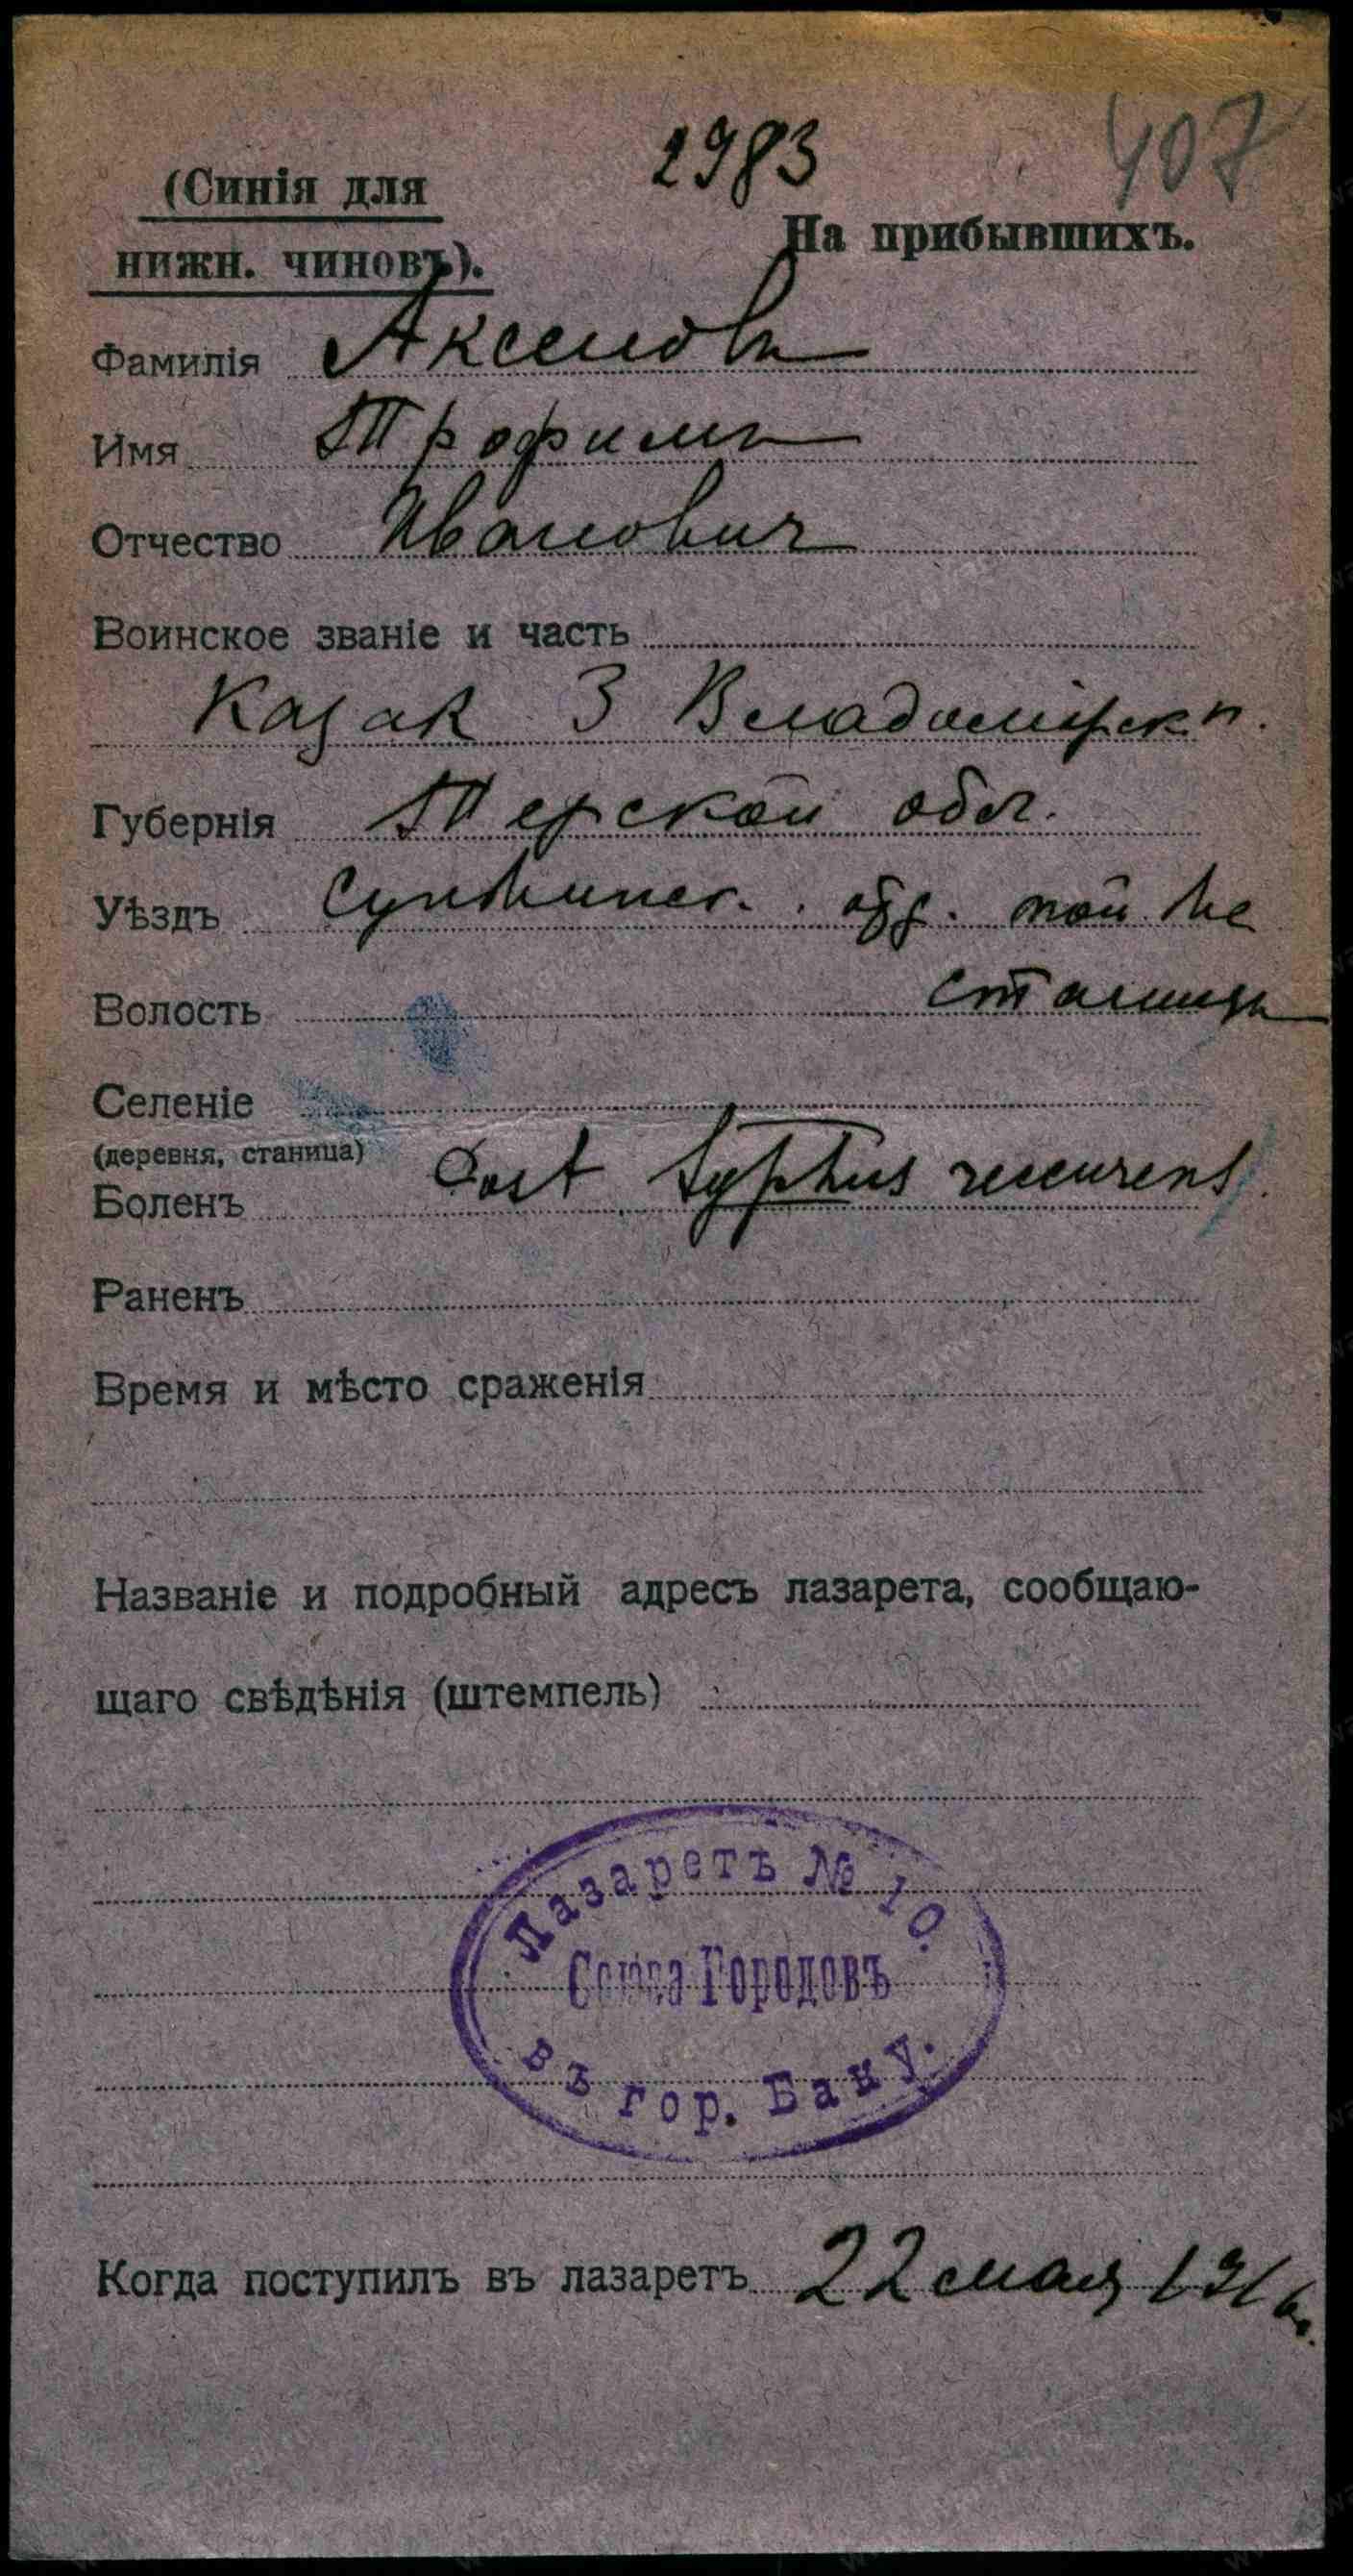 2983
407
(Синія для
нижн. чиновъ).
На прибывшихъ.
Фамилія Аксеновъ
Имя Трофимъ
Отчество Ивановичъ
Воинское званіе и часть
Казак 3 Владимірск п.
Губернія Терской обл.
Уѣздъ Сунженск. отд. той же
Волость станицы
Селеніе
(деревня, станица)
Боленъ Post typhus recurens
Раненъ
Время и мѣсто сраженія
Названіе и подробный адресъ лазарета, сообщаю-
щаго свѣдѣнія (штемпель)
Лазаретъ № 10.
Союза Городовъ
въ гор. Баку.
Когда поступилъ въ лазаретъ 22 мая 1916 г.